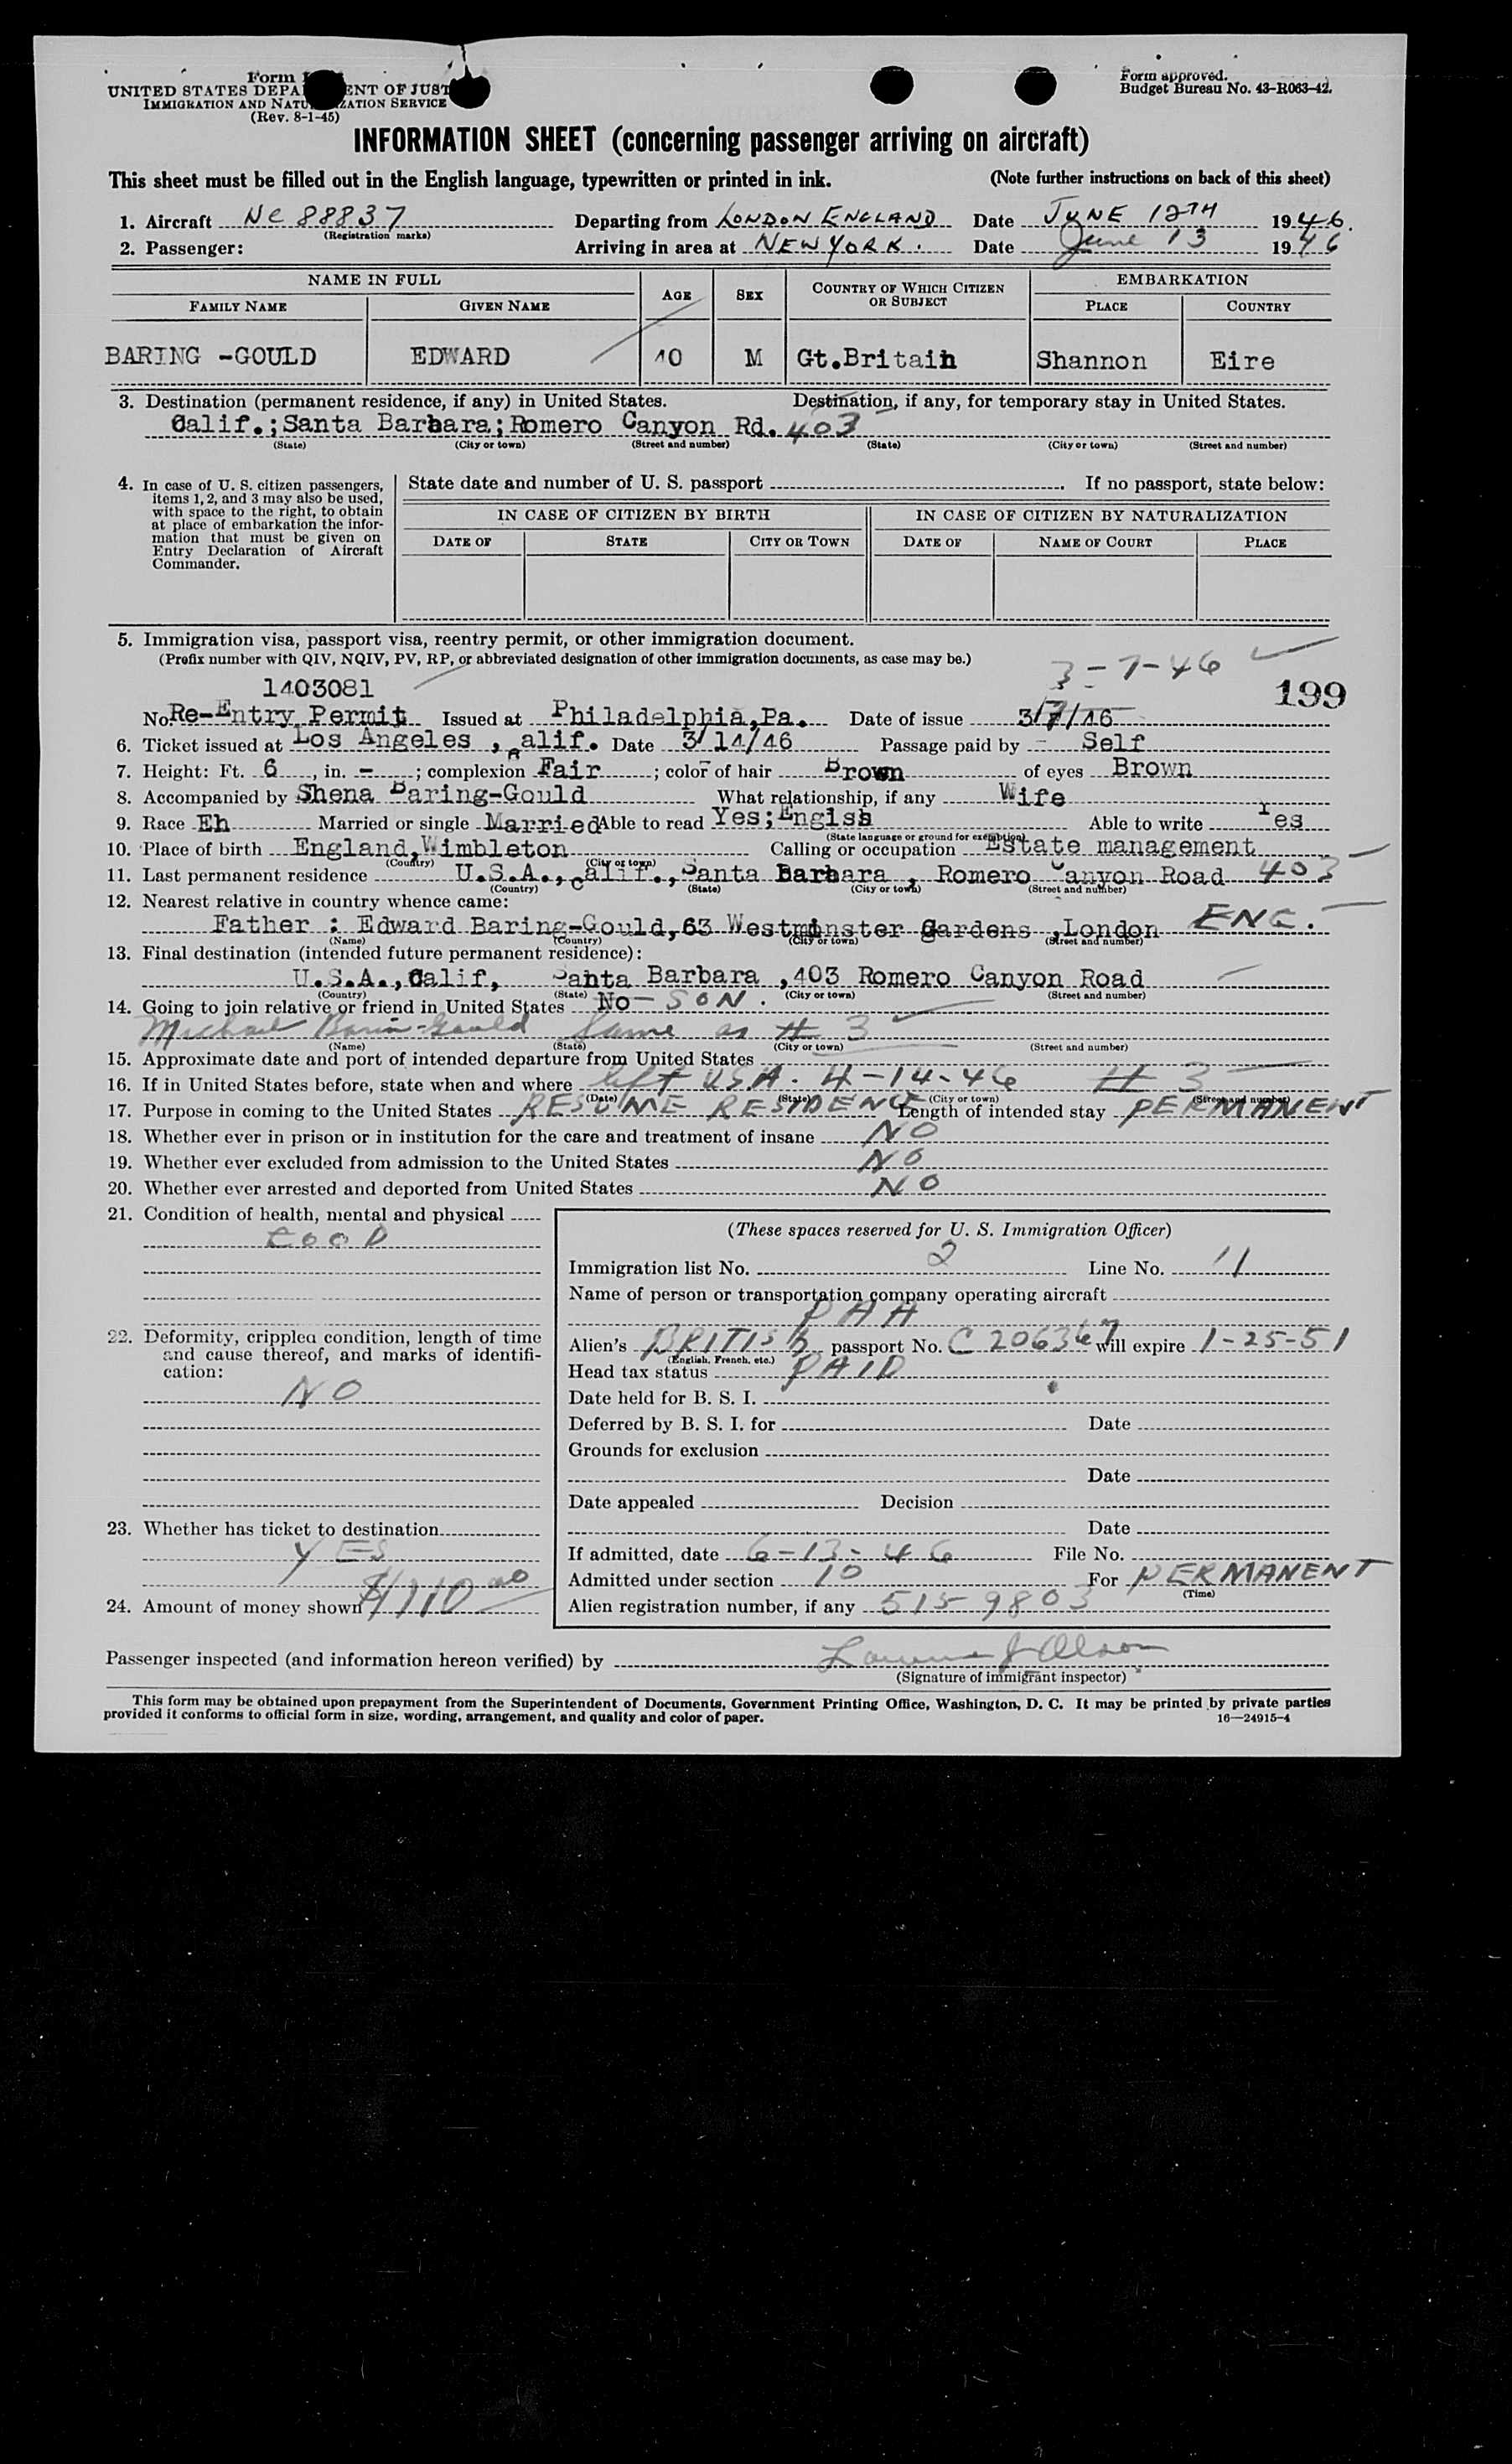 Form
UNITED STATES DEPA ENT OF JUST
IMMIGRATION AND NATU ZATION SERVICE
(Rev. 8-1-45)
Form approved.
Budget Bureau No. 43-R063-42.
INFORMATION SHEET (concerning passenger arriving on aircraft)
This sheet must be filled out in the English language, typewritten or printed in ink. (Note further instructions on back of this sheet)
1. Aircraft NC 88837 Departing from LONDON ENGLAND Date JUNE 12TH 1946.
(Registration marks)
2. Passenger: Arriving in area at NEW YORK. Date June 13 1946
NAME IN FULL AGE SEX COUNTRY OF WHICH CITIZEN OR SUBJECT EMBARKATION
FAMILY NAME GIVEN NAME PLACE COUNTRY
BARING -GOULD EDWARD 40 M Gt.Britain Shannon Eire
3. Destination (permanent residence, if any) in United States. Destination, if any, for temporary stay in United States.
Calif.;Santa Barbara;Romero Canyon Rd. 403
(State) (City or town) (Street and number) (State) (City or town) (Street and number)
4. In case of U. S. citizen passengers, items 1, 2, and 3 may also be used, with space to the right, to obtain at place of embarkation the information that must be given on Entry Declaration of Aircraft Commander.
State date and number of U. S. passport . If no passport, state below:
IN CASE OF CITIZEN BY BIRTH IN CASE OF CITIZEN BY NATURALIZATION
DATE OF STATE CITY OR TOWN DATE OF NAME OF COURT PLACE
5. Immigration visa, passport visa, reentry permit, or other immigration document.
(Prefix number with QIV, NQIV, PV, RP, or abbreviated designation of other immigration documents, as case may be.)
3-7-46
199
1403081
No. Re-Entry Permit Issued at Philadelphia,Pa. Date of issue 3/7/46
6. Ticket issued at Los Angeles , Calif. Date 3/14/46 Passage paid by - Self
7. Height: Ft. 6, in. -; complexion Fair; color of hair Brown of eyes Brown
8. Accompanied by Shena Baring-Gould What relationship, if any Wife
9. Race Eh Married or single Married Able to read Yes;Englsh Able to write Yes
(State language or ground for exemption)
10. Place of birth England,Wimbleton Calling or occupation Estate management
(Country) (City or town)
11. Last permanent residence U.S.A., Calif.,Santa Barbara , Romero Canyon Road 403
(Country) (State) (City or town) (Street and number)
12. Nearest relative in country whence came:
Father : Edward Baring-Gould,63 Westminster Gardens ,London ENG.
(Name) (Country) (City or town) (Street and number)
13. Final destination (intended future permanent residence):
U.S.A.,Calif, Santa Barbara ,403 Romero Canyon Road
(Country) (State) (City or town) (Street and number)
14. Going to join relative or friend in United States No - SON.
Michael Barin-Gould Same as # 3
(Name) (State) (City or town) (Street and number)
15. Approximate date and port of intended departure from United States
16. If in United States before, state when and where left USA. 4-14-46 # 3
(Date) (State) (City or town) (Street and number)
17. Purpose in coming to the United States RESUME RESIDENCE Length of intended stay PERMANENT
18. Whether ever in prison or in institution for the care and treatment of insane NO
19. Whether ever excluded from admission to the United States NO
20. Whether ever arrested and deported from United States NO
21. Condition of health, mental and physical
GOOD
22. Deformity, crippled condition, length of time and cause thereof, and marks of identification:
NO
23. Whether has ticket to destination
YES
24. Amount of money shown $1110.00
(These spaces reserved for U. S. Immigration Officer)
Immigration list No. 2 Line No. 11
Name of person or transportation company operating aircraft
PAA
Alien's BRITISH passport No. C 206367 will expire 1-25-51
(English, French, etc.)
Head tax status PAID
Date held for B. S. I.
Deferred by B. S. I. for Date
Grounds for exclusion
Date
Date appealed Decision
Date
If admitted, date 6-13-46 File No.
Admitted under section 10 For PERMANENT
(Time)
Alien registration number, if any 5159803
Passenger inspected (and information hereon verified) by
(Signature of immigrant inspector)
This form may be obtained upon prepayment from the Superintendent of Documents, Government Printing Office, Washington, D. C. It may be printed by private parties
provided it conforms to official form in size, wording, arrangement, and quality and color of paper. 16—24915-4